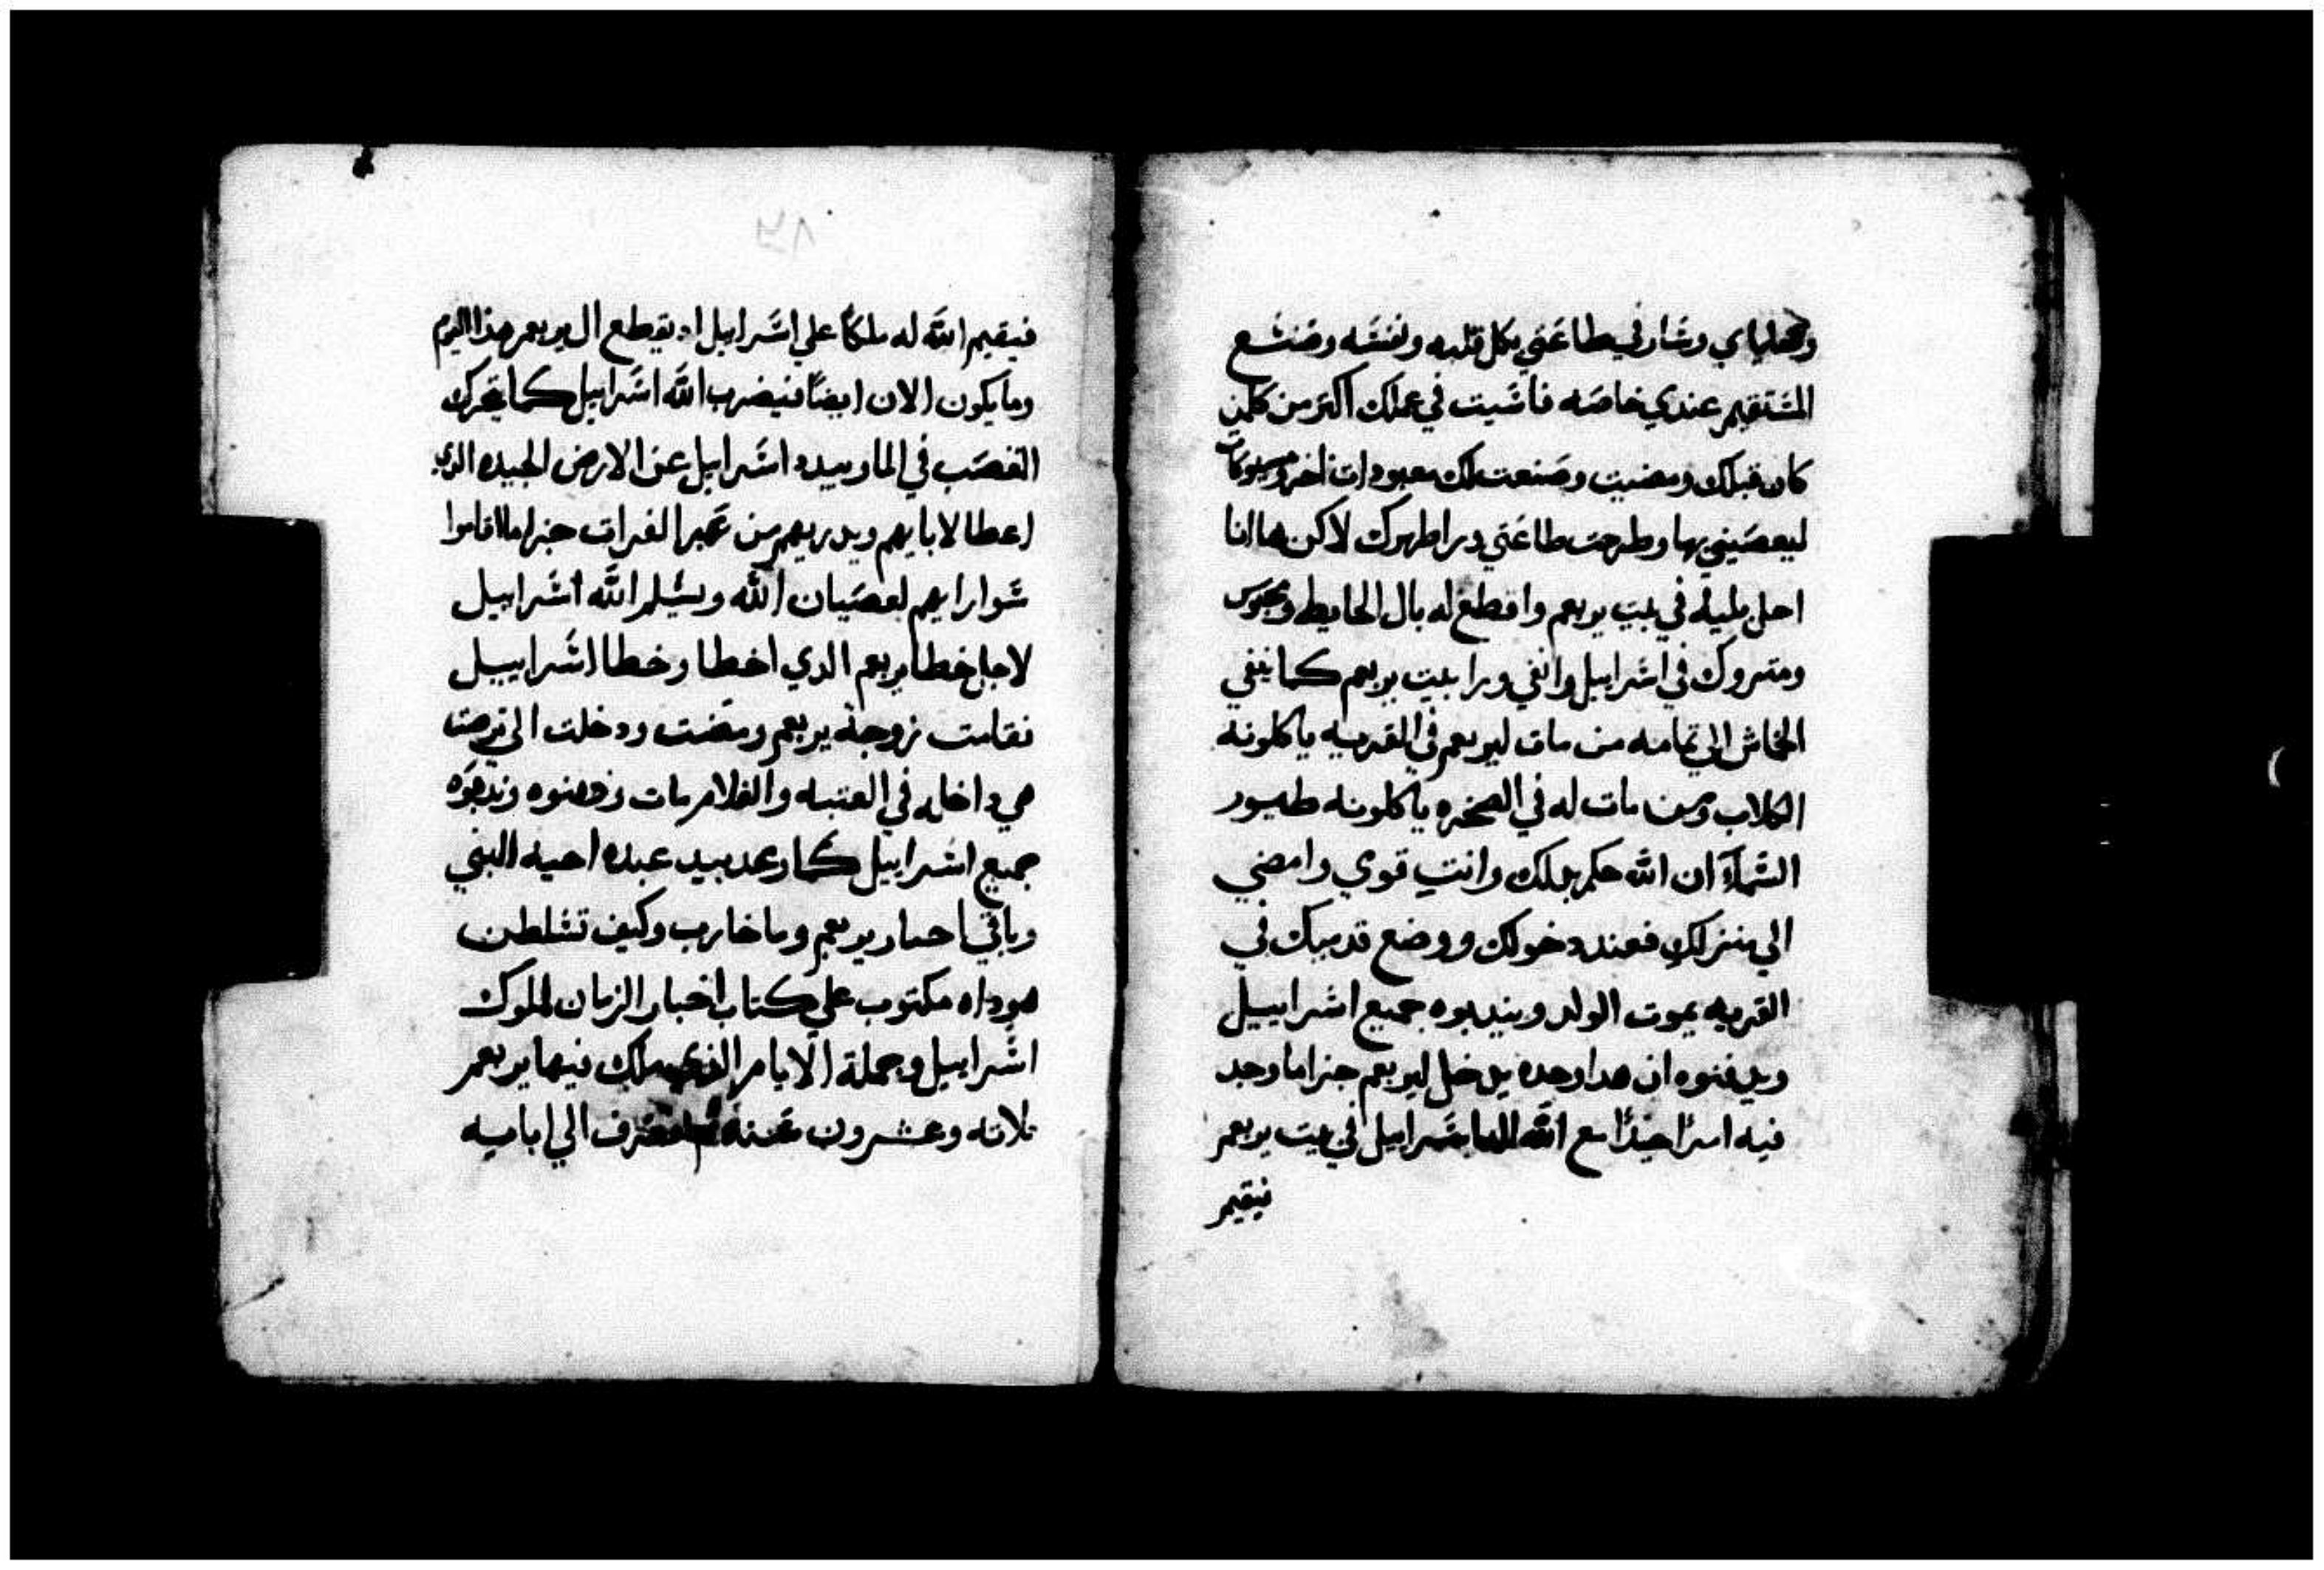 وصاياي وسار في طاعتي بكل قلبه ونفسه وصنع
المستقيم عندي خاصه فاسيت في عملك اكتر من كلمن
كان قبلك ومضيت وصنعت لك معبودات اخر ومسبوكات
ليعصيني بها وطرحت طاعتي ورا طهرك لاكن هاانا
احل بليه في بيت يربعم واقطع له بال الحايط ومحبوس
ومتروك في اسراييل وانفي ورا بيت يربعم كما ينفي
الى تمامه من مات ليربعم في القريه ياكلونه
الكلاب ومن مات له في الصحره ياكلونه طيور
السمآ ان الله حكم بدلك وانتِ قومي وامضي
الي منزلكِ فعند دخولك ووضع قدميك في
القريه يموت الولد ويندبوه جميع اسراييل
ويدفنوه ان هدا وحده يدخل ليربعم جنراما وجد
فيه امرًا جيدًا مع الله الاه اسراييل في بيت يربعم
فيقيم
فيقيم الله له ملكًا علي اسراييل اد يقطع ال يربعم هذا اليوم
وما يكون الان ايضًا فيضرب الله اسراييل كما يتحرك
القصب في الما ويبيد اسراييل عن الارض الجيده الدي
اعطا لابايهم ويدريهم من عبر الفرات جنراما اقاموا
سوارايهم لعصيان الله ويسلم الله اسراييل
لاجل خطا يربعم الدي اخطا وخطا اسراييل
فقامت زوجة يربعم ومضت ودخلت الي ترصتا
هي داخله في العتبه والغلام مات ودفنوه وندبوه
جميع اسراييل كما وعد بيد عبده احيه النبي
وباقي اخبار يربعم وما حارب وكيف تسلطن
هوداه مكتوب علي كتاب اخبار الزمان لملوك
اسراييل وجملة الايام الذي ملك فيها يربعم
تلاته وعشرون سنه الي ابايه